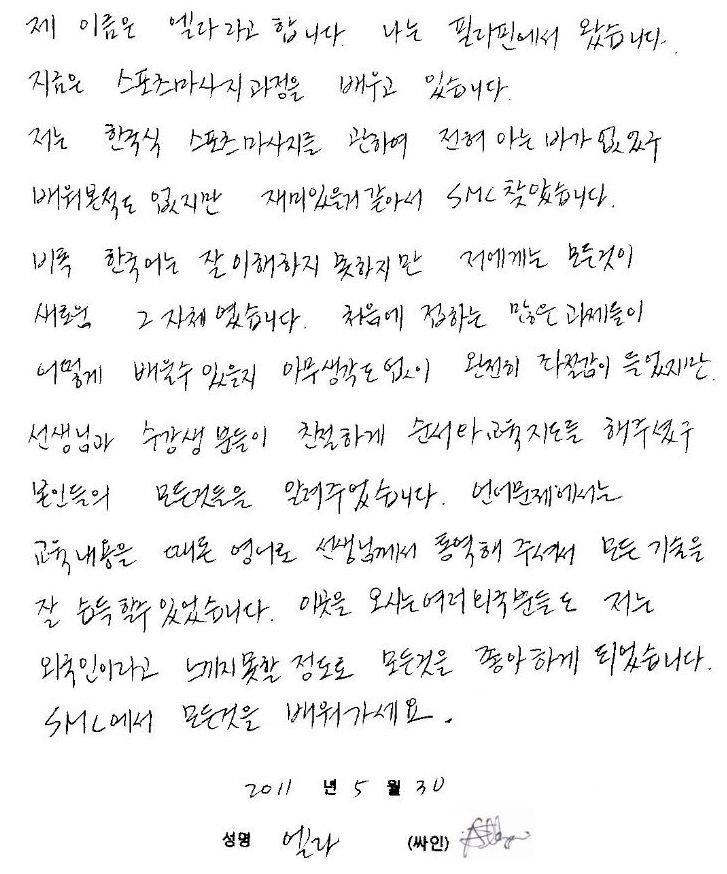 제 이름은 엘라라고 합니다. 나는 필리핀에서 왔습니다.
지금은 스포츠마사지과정을 배우고 있습니다.
저는 한국식 스포츠마사지를 관하여 전혀 아는 바가 없었구
배워본적도 없지만 재미있을거같아서 SML찾았습니다.
비록 한국어는 잘 이해하지 못하지만 저에게는 모든것이
새로움 그 자체 였습니다. 처음에 접하는 많은 과제들이
어떻게 배울수 있을지 아무생각도 없이 완전히 좌절감이 들었지만.
선생님과 수강생 분들이 친절하게 순서타 교육지도를 해주셨구
본인들의 모든것들을 알려주었습니다. 언어문제에서는
교육내용을 때론 영어로 선생님께서 통역해 주셔서 모든 기술을
잘 습득할수 있었습니다. 이곳을 오시는여러 외국분들도 저는
외국인이라고 느끼지못할 정도로 모든것을 좋아하게 되었습니다.
SML에서 모든것을 배워가세요.
2011 년 5 월 30
성명 엘라 (싸인)